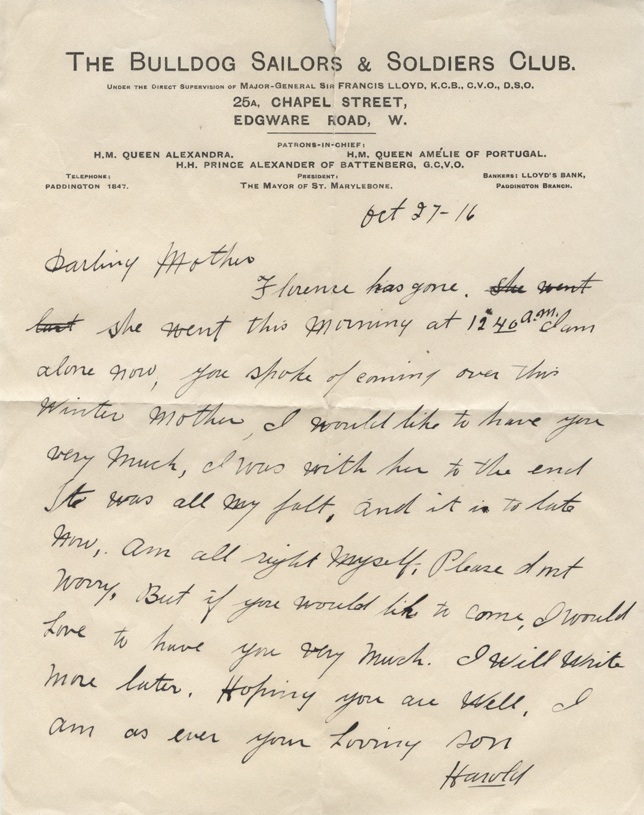 THE BULLDOG SAILORS & SOLDIERS CLUB.
UNDER THE DIRECT SUPERVISION OF MAJOR-GENERAL SIR FRANCIS LLOYD, K.C.B., C.V.O., D.S.O.
25A, CHAPEL STREET,
EDGWARE ROAD, W.
PATRONS-IN-CHIEF:
H.M. QUEEN ALEXANDRA. H.M. QUEEN AMÉLIE OF PORTUGAL.
H.H. PRINCE ALEXANDER OF BATTENBERG, G.C.V.O.
TELEPHONE: PRESIDENT: BANKERS: LLOYD'S BANK,
PADDINGTON 1847. THE MAYOR OF ST. MARYLEBONE. PADDINGTON BRANCH.
Oct 27-16
Darling Mother
Florence has gone. she went
last she went this Morning at 12 40 a.m. I am
alone now, you spoke of coming over this
Winter Mother, I would like to have you
very Much, I was with her to the end
It was all My falt, and it is to late
Now, Am all right Myself. Please dont
Worry. But if you would like to come, I would
Love to have you very Much. I Will Write
More later. Hoping you are Well, I
am as ever your Loving son
Harold